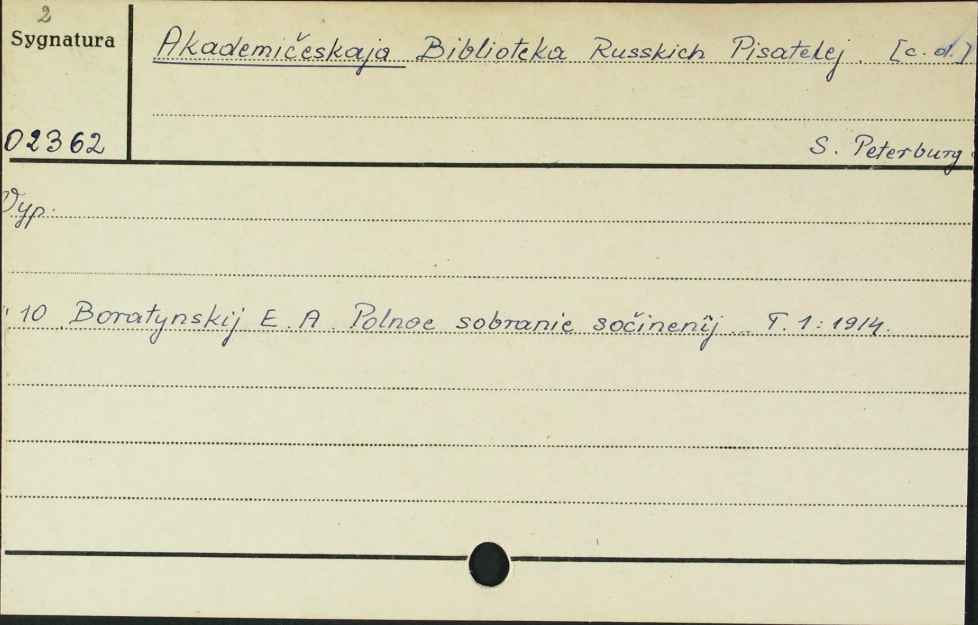 2
Sygnatura
Akademičeskaja Biblioteka Russkich Pisatelej. [c.d.]
02362
S. Peterburg
Vyp.
10 Boratynskij E. A. Polnoe sobranie sočinenij ... T. 1: 1914.